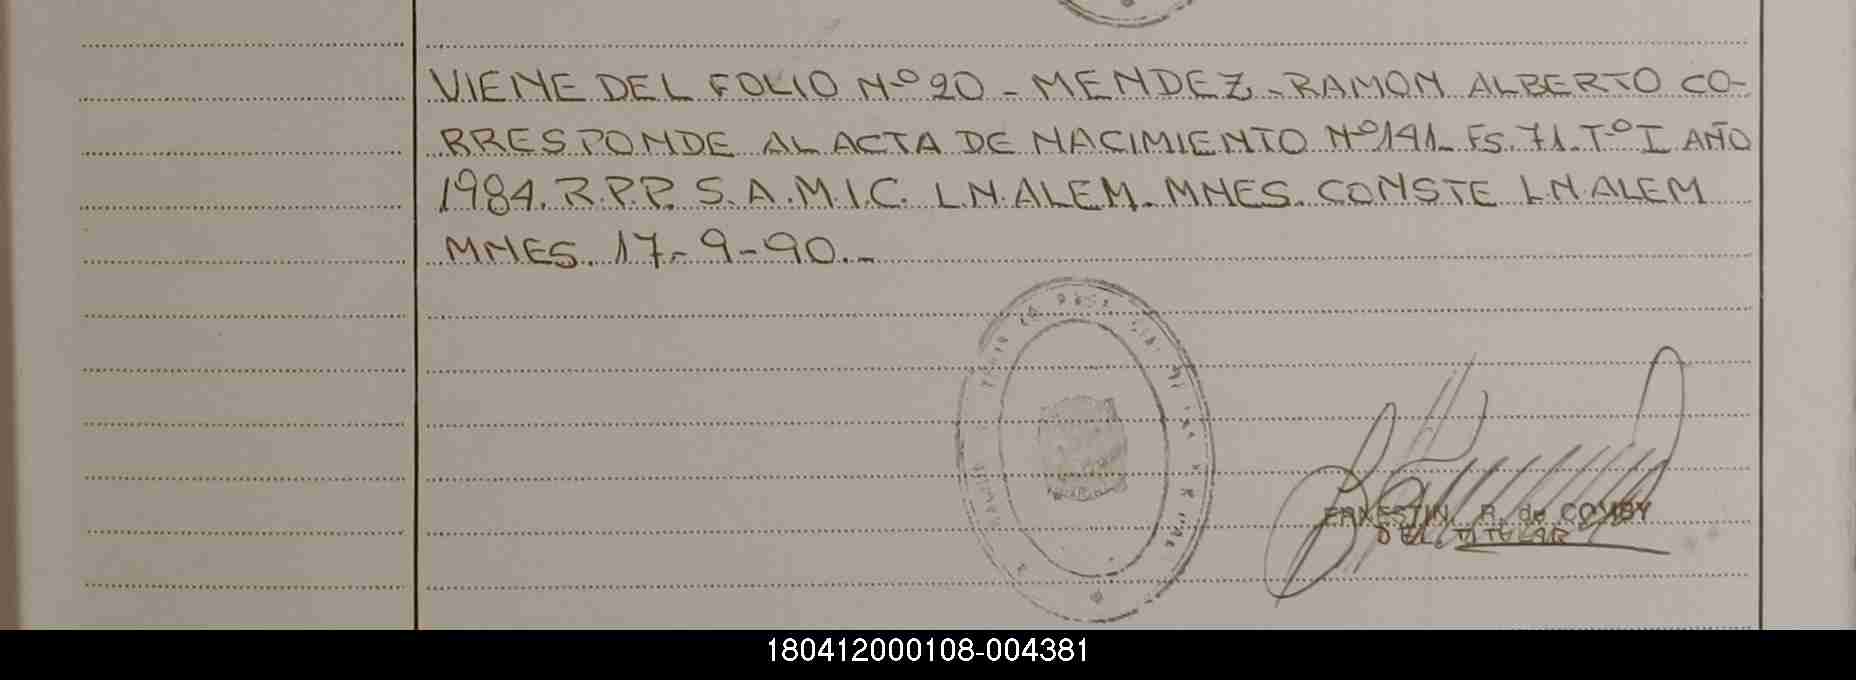 VIENE DEL FOLIO Nº 20 - MENDEZ - RAMON ALBERTO CO-
RRESPONDE AL ACTA DE NACIMIENTO Nº 141_ FS. 71_ Tº I AÑO
1984. R.P.P. S.A.M.I.C. L.N.ALEM. MNES. CONSTE L.N.ALEM
MNES. 17-9-90._
R. de COMBY
DEL. TITULAR
180412000108-004381